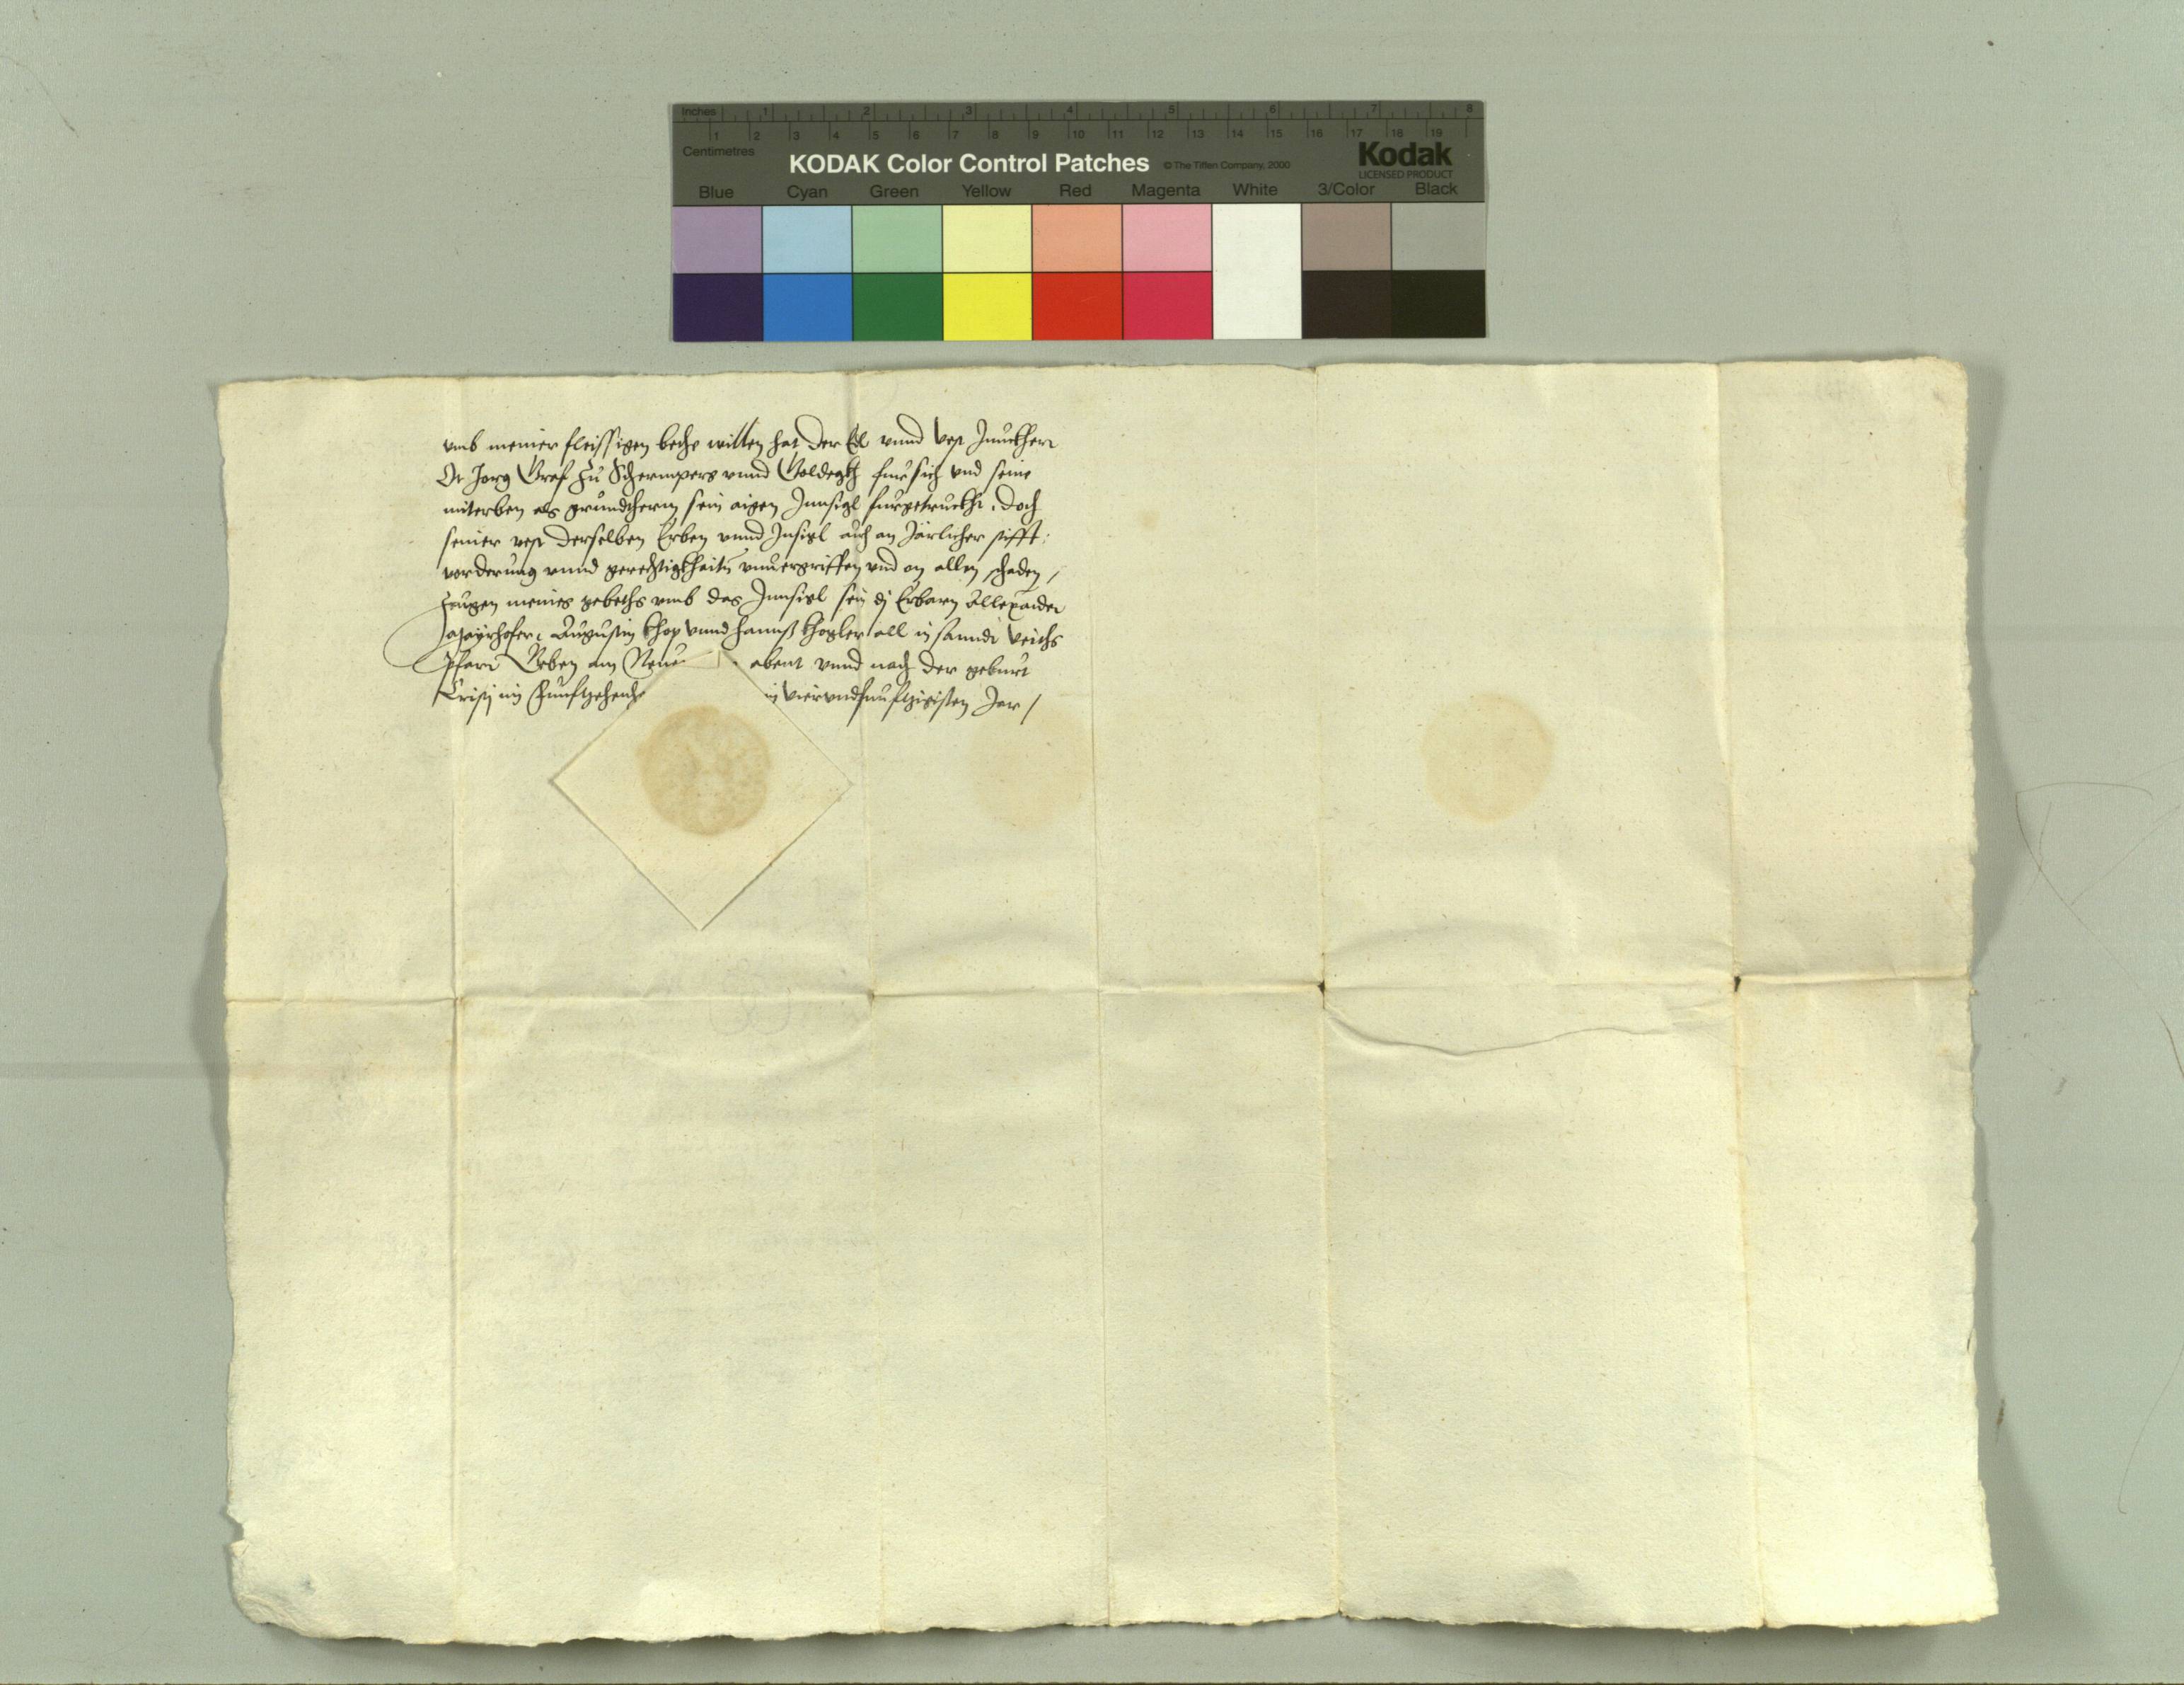 Inches 1 2 3 4 5 6 7 8
1 2 3 4 5 6 7 8 9 10 11 12 13 14 15 16 17 18 19
Centimetres
KODAK Color Control Patches © The Tiffen Company, 2000 Kodak
LICENSED PRODUCT
Blue Cyan Green Yellow Red Magenta White 3/Color Black
vmb meiner fleissigen beth willen hat der Edl vnnd vest Junckherr
Jorg Graf zu Schernperg vnnd Goldegkh fur sich vnd seine
miterben als grundtherrn sein aigen Innsigl furgetruckht, doch
seiner vest derselben Erben vnnd Insigl auch an Järlicher stifft
vorderung vnnd gerechtigkhaitn vnuergriffen vnd on allen schaden /
Zeugen meines gebeths vmb das Innsigl sein dj Erbarn Allexander
Mayrhofer, Augustin khop vnnd hannß khogler all in sannd veichs
Pfarr Geben am Neue abent vnnd nach der geburt
Cristj im Funfftzehenh vierundfunfftzigisten Jar /